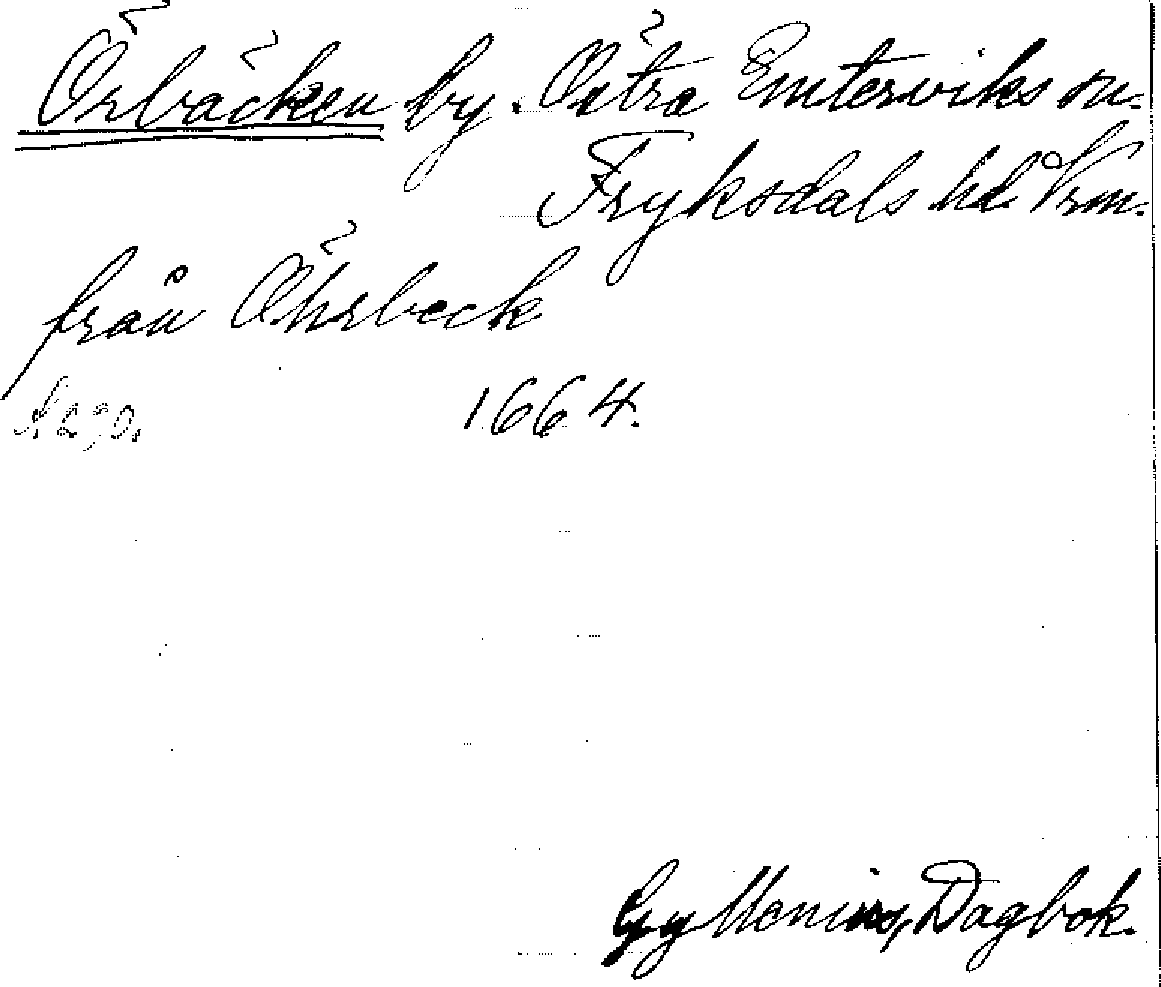 Örbäcken by. Östra Emterviks sn.
Fryksdals hd Vrm.
från Öhrbeck
1664.
Gyllenius, Dagbok.